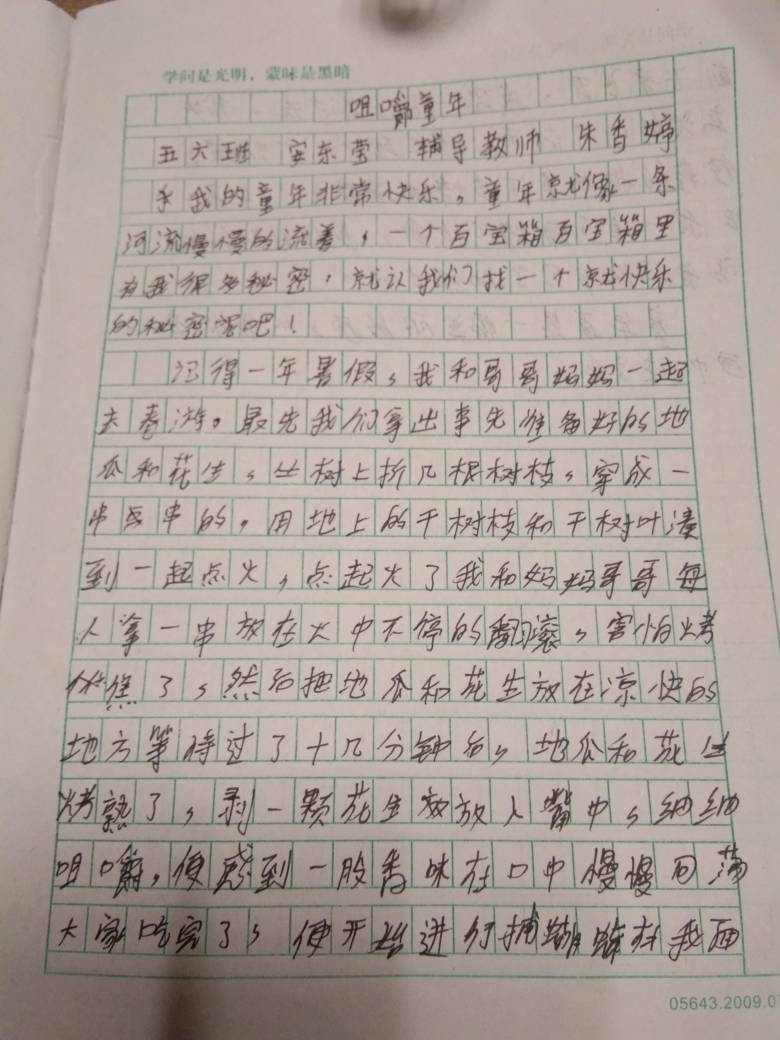 学问是光明，蒙昧是黑暗
咀嚼童年
五六班 安东莹 辅导教师 朱香婷
我的童年非常快乐，童年就像一条
河流慢慢的流着，一个百宝箱百宝箱里
有我很多秘密，就让我们找一个就快乐
的秘密吧！
记得一年暑假，我和哥哥妈妈一起
去春游。最先我们拿出事先准备好的地
瓜和花生，从树上折几根树枝，穿成一
串串的，用地上的干树枝和干树叶凑
到一起点火，点起火了我和妈妈哥哥每
人拿一串放在火中不停的翻滚，害怕烤
焦了，然后把地瓜和花生放在凉快的
地方等待过了十几分钟后，地瓜和花生
烤熟了，剥一颗花生放放入嘴中，细细
咀嚼，便感到一股香味在口中慢慢回荡
大家吃完了，便开始进行捕我面
05643.2009.0